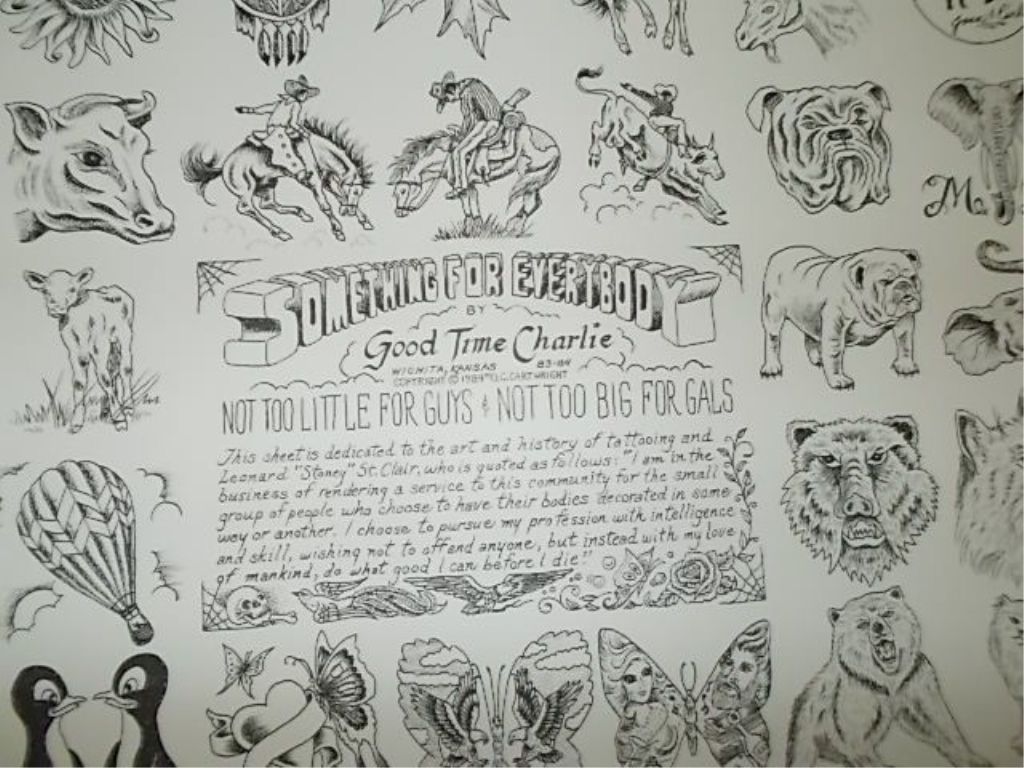 Mo
SOMETHING FOR EVERYBODY
BY
Good Time Charlie
WICHITA, KANSAS 83-84
COPYRIGHT © 1984 D.C. CARTWRIGHT
NOT TOO LITTLE FOR GUYS & NOT TOO BIG FOR GALS
This sheet is dedicated to the art and history of tattooing and
Leonard "Stoney" St. Clair, who is quoted as follows: "I am in the
business of rendering a service to this community for the small
group of people who choose to have their bodies decorated in some
way or another. I choose to pursue my profession with intelligence
and skill, wishing not to offend anyone, but instead with my love
of mankind, do what good I can before I die."